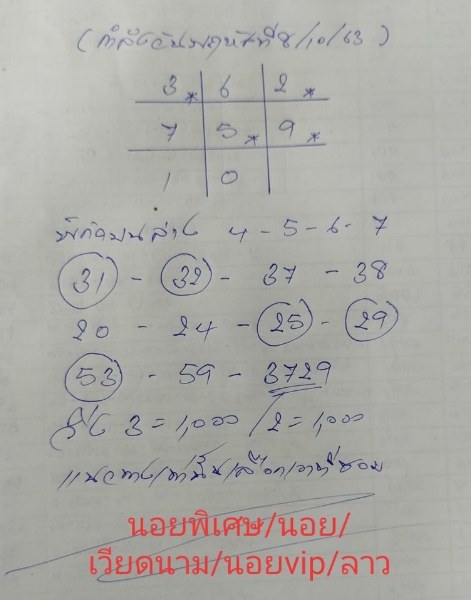 (กำลังวันพฤหัสที่8/10/63)
3* 6 2*
7 5* 9*
1 0
พิกัดบนล่าง 4-5-6-7
31 - 32 - 37 - 38
20 - 24 - 25 - 29
53 - 59 - 3729
วิ่ง 3=1,000/2=1,000
แนวทางเท่านั้นเลือกเอาที่ชอบ
นอยพิเศษ/นอย/
เวียดนาม/นอยvip/ลาว